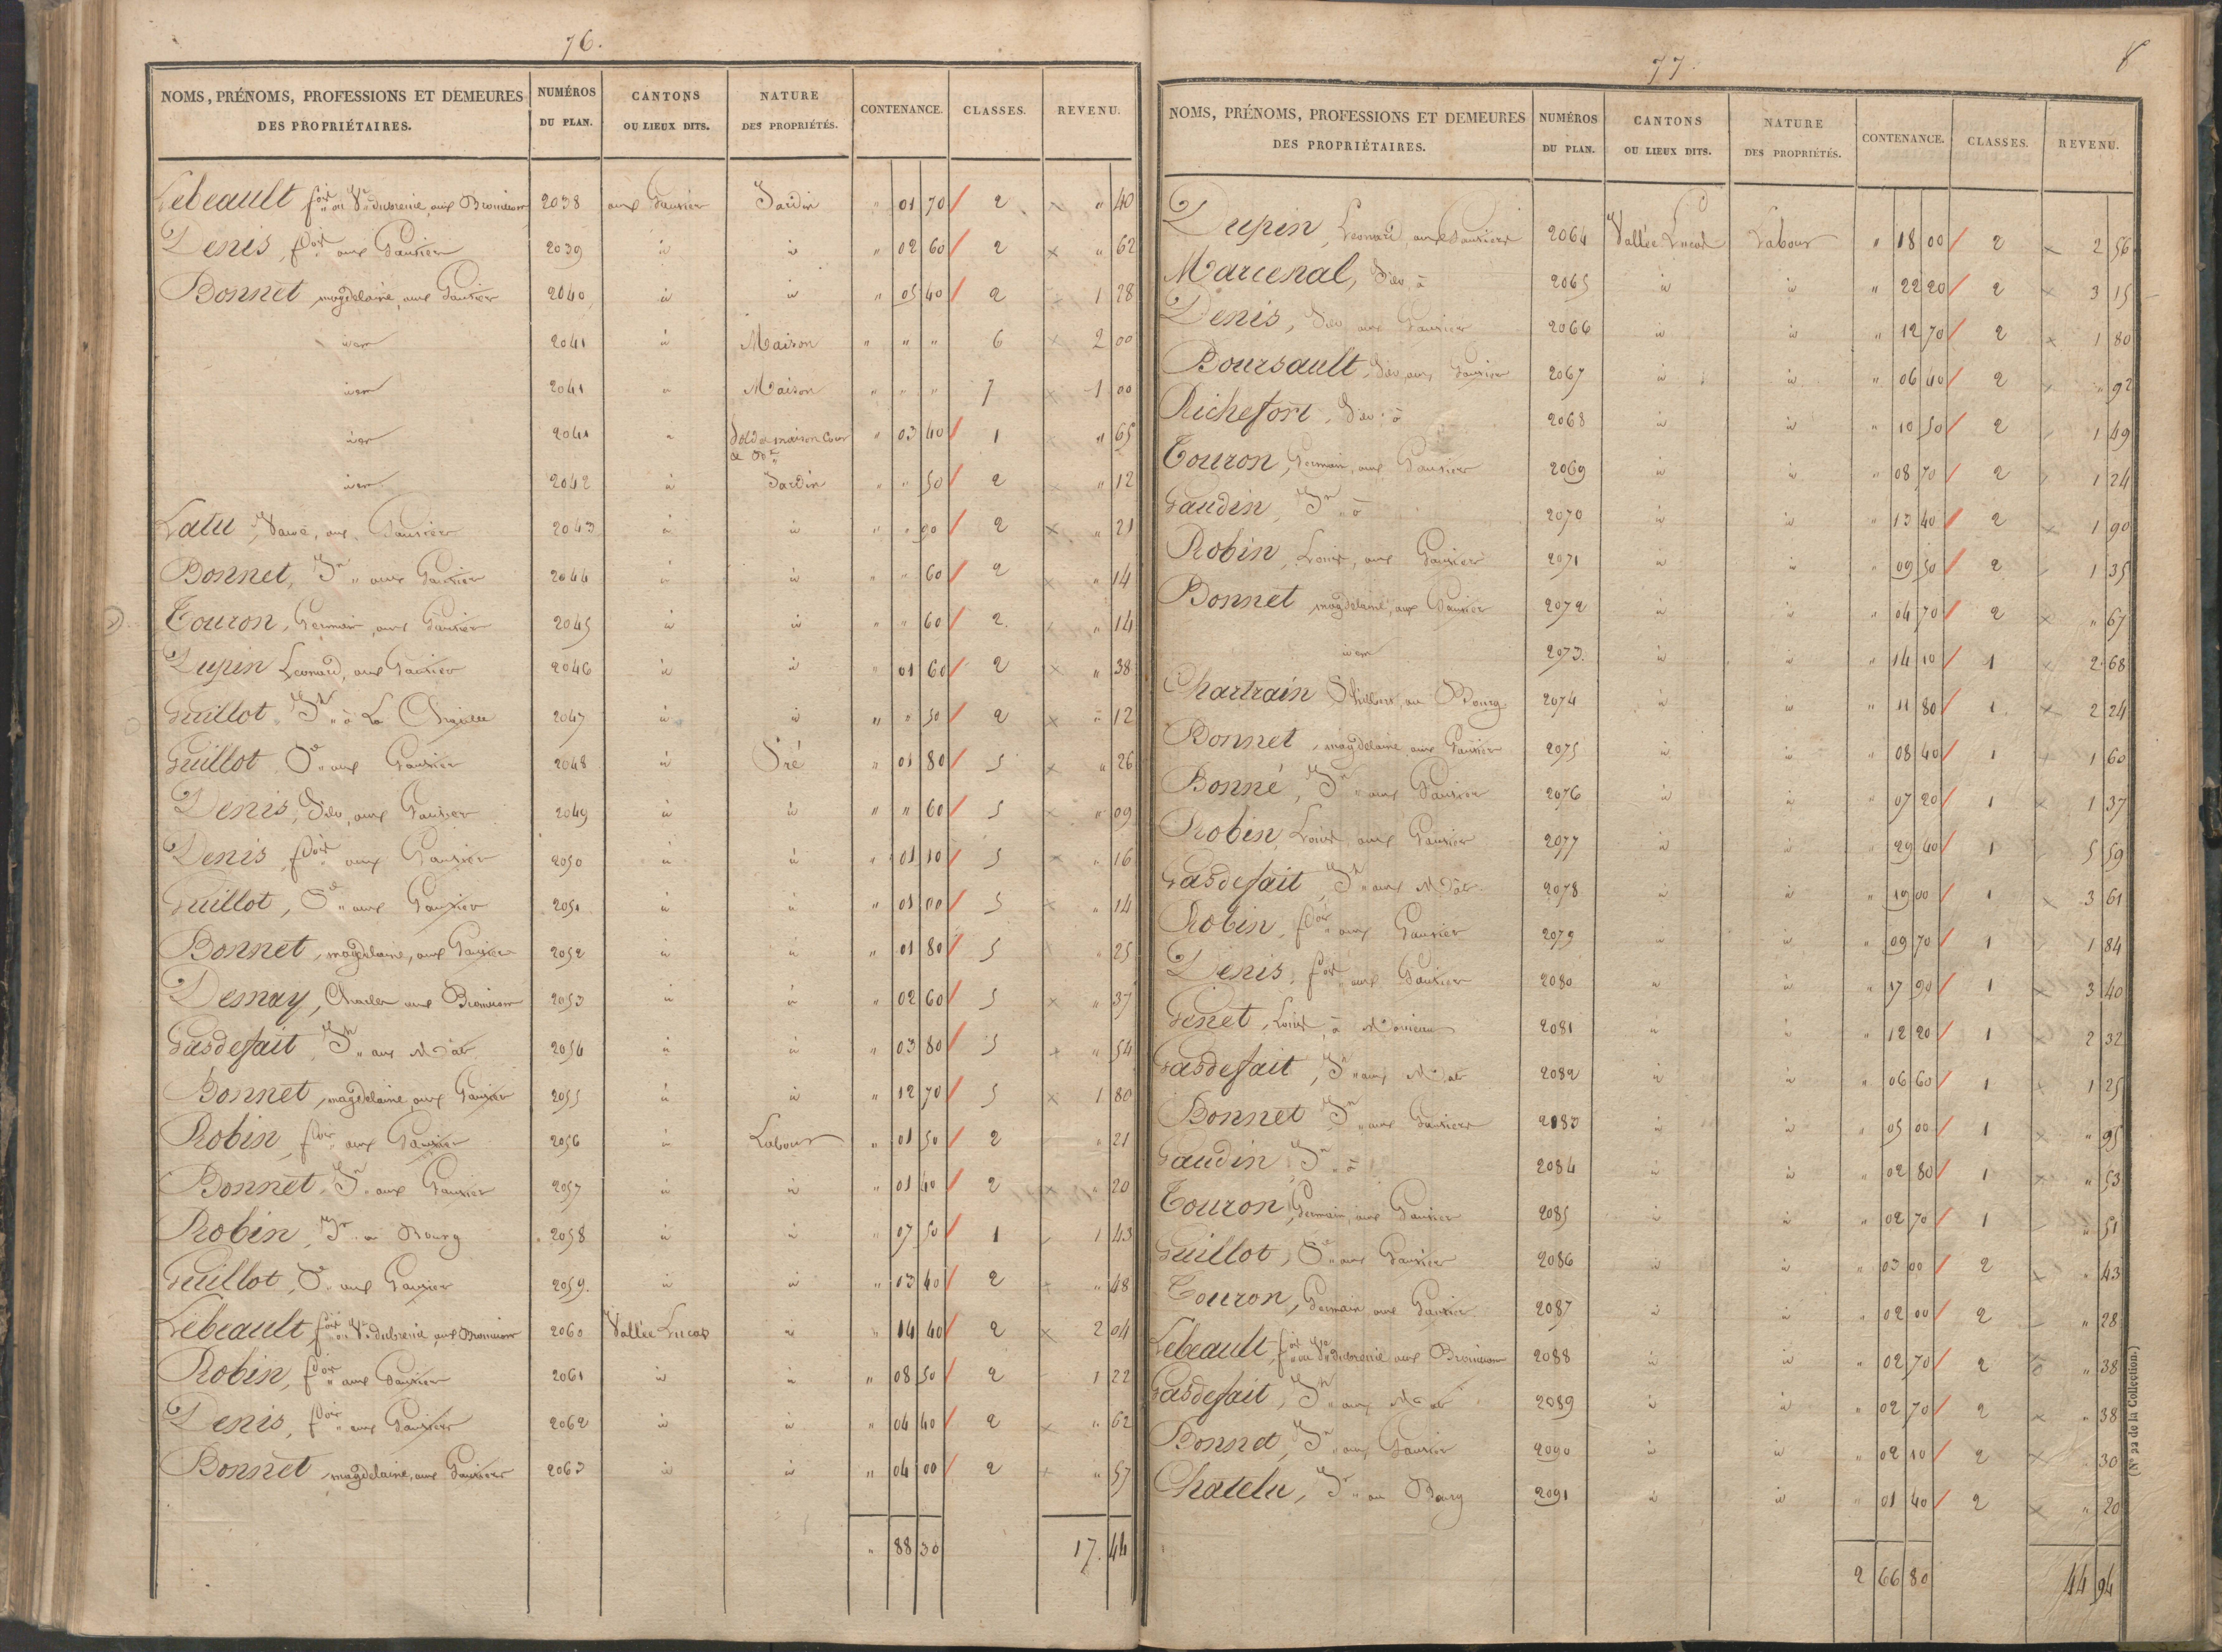 76.
NOMS, PRÉNOMS, PROFESSIONS ET DEMEURES DES PROPRIÉTAIRES. NUMÉROS DU PLAN. CANTONS OU LIEUX DITS. NATURE DES PROPRIÉTÉS. CONTENANCE. CLASSES. REVENU.
Lebeault, fois ou Ve 2038 aux Gautier Jardin " 01 70 2 " 40
Denis, fois aux Gautier 2039 id id " 02 60 2 " 62
Bonnet magdelaine, aux Gautier 2040 id id " 05 40 2 1 28
idem 2041 id Maison " " " 6 2 00
idem 2041 " Maison " " " 7 1 00
idem 2041 " Sol de maison Cour " 03 40 1 " 65
idem 2042 id Jardin " " 50 2 " 12
Latu, aux Gautier 2043 id id " " 90 2 " 21
Bonnet, Jn aux Gautier 2044 id id " " 60 2 " 14
Touron, Germain, aux Gautier 2045 id id " " 60 2 " 14
Dupin Leonard, aux Gautier 2046 id id " 01 60 2 " 38
Guillot Jn à La 2047 id id " " 50 2 " 12
Guillot Se aux Gautier 2048 id Pré " 01 80 5 " 26
Denis, aux Gautier 2049 id id " " 60 5 " 09
Denis fois aux Gautier 2050 id id " 01 10 5 " 16
Guillot, Se aux Gautier 2051 id id " 01 00 5 " 14
Bonnet, magdelaine, aux Gautier 2052 id id " 01 80 5 " 25
Demay, Charles aux 2053 id id " 02 60 5 " 37
Gasdefait Jn aux 2054 id id " 03 80 5 " 54
Bonnet, magdelaine, aux Gautier 2055 id id " 12 70 5 1 80
Robin, fois aux Gautier 2056 id Labour " 01 50 2 " 21
Bonnet, Jn aux Gautier 2057 id id " 01 40 2 " 20
Robin, Jn au Bourg 2058 id id " 07 50 1 1 43
Guillot, Se aux Gautier 2059 id id " 03 40 2 " 48
Lebeault, fois ou Ve 2060 Vallée Lucas id " 14 40 2 2 04
Robin, fois aux Gautier 2061 id id " 08 50 2 1 22
Denis, fois aux Gautier 2062 id id " 04 40 2 " 62
Bonnet magdelaine, aux Gautier 2063 id id " 04 00 2 " 57
" 88 30 17. 44
77.
8
NOMS, PRÉNOMS, PROFESSIONS ET DEMEURES DES PROPRIÉTAIRES. NUMÉROS DU PLAN. CANTONS OU LIEUX DITS. NATURE DES PROPRIÉTÉS. CONTENANCE. CLASSES. REVENU.
Dupin, Leonard, aux Gautier 2064 Vallée Lucas Labour " 18 00 2 2 56
Marcenal, à 2065 id id " 22 20 2 3 15
Denis, aux Gautier 2066 id id " 12 70 2 1 80
Boursault, aux Gautier 2067 id id " 06 40 2 " 92
Richefort, à 2068 id id " 10 50 2 1 49
Touron, Germain, aux Gautier 2069 id id " 08 70 2 1 24
Gaudin, Jn à 2070 id id " 13 40 2 1 90
Robin, Louis, aux Gautier 2071 id id " 09 50 2 1 35
Bonnet magdelaine, aux Gautier 2072 id id " 04 70 2 " 67
idem 2073 id id " 14 10 1 2 68
Chartrain au Bourg 2074 id id " 11 80 1 2 24
Bonnet, magdelaine aux Gautier 2075 id id " 08 40 1 1 60
Bonné, Jn aux Gautier 2076 id id " 07 20 1 1 37
Robin, Louis, aux Gautier 2077 id id " 29 40 1 5 59
Gasdefait, Jn aux 2078 id id " 19 00 1 3 61
Robin, fois aux Gautier 2079 id id " 09 70 1 1 84
Denis, fois aux Gautier 2080 id id " 17 90 1 3 40
Genet, Louis, à 2081 id id " 12 20 1 2 32
Gasdefait, Jn aux 2082 id id " 06 60 1 1 25
Bonnet Jn aux Gautier 2083 id id " 05 00 1 " 95
Gaudin, Jn à 2084 id id " 02 80 1 " 53
Touron, Germain, aux Gautier 2085 id id " 02 70 1 " 51
Guillot, Se aux Gautier 2086 id id " 03 00 2 " 43
Touron, Germain, aux Gautier 2087 id id " 02 00 2 " 28
Lebeault, fois ou Ve 2088 id id " 02 70 2 " 38
Gasdefait, Jn aux 2089 id id " 02 70 2 " 38
Bonnet, Jn aux Gautier 2090 id id " 02 10 2 " 30
Chatelu, Jn au Bourg 2091 id id " 01 40 2 " 20
2 66 80 44 94
(N° 22 de la Collection.)